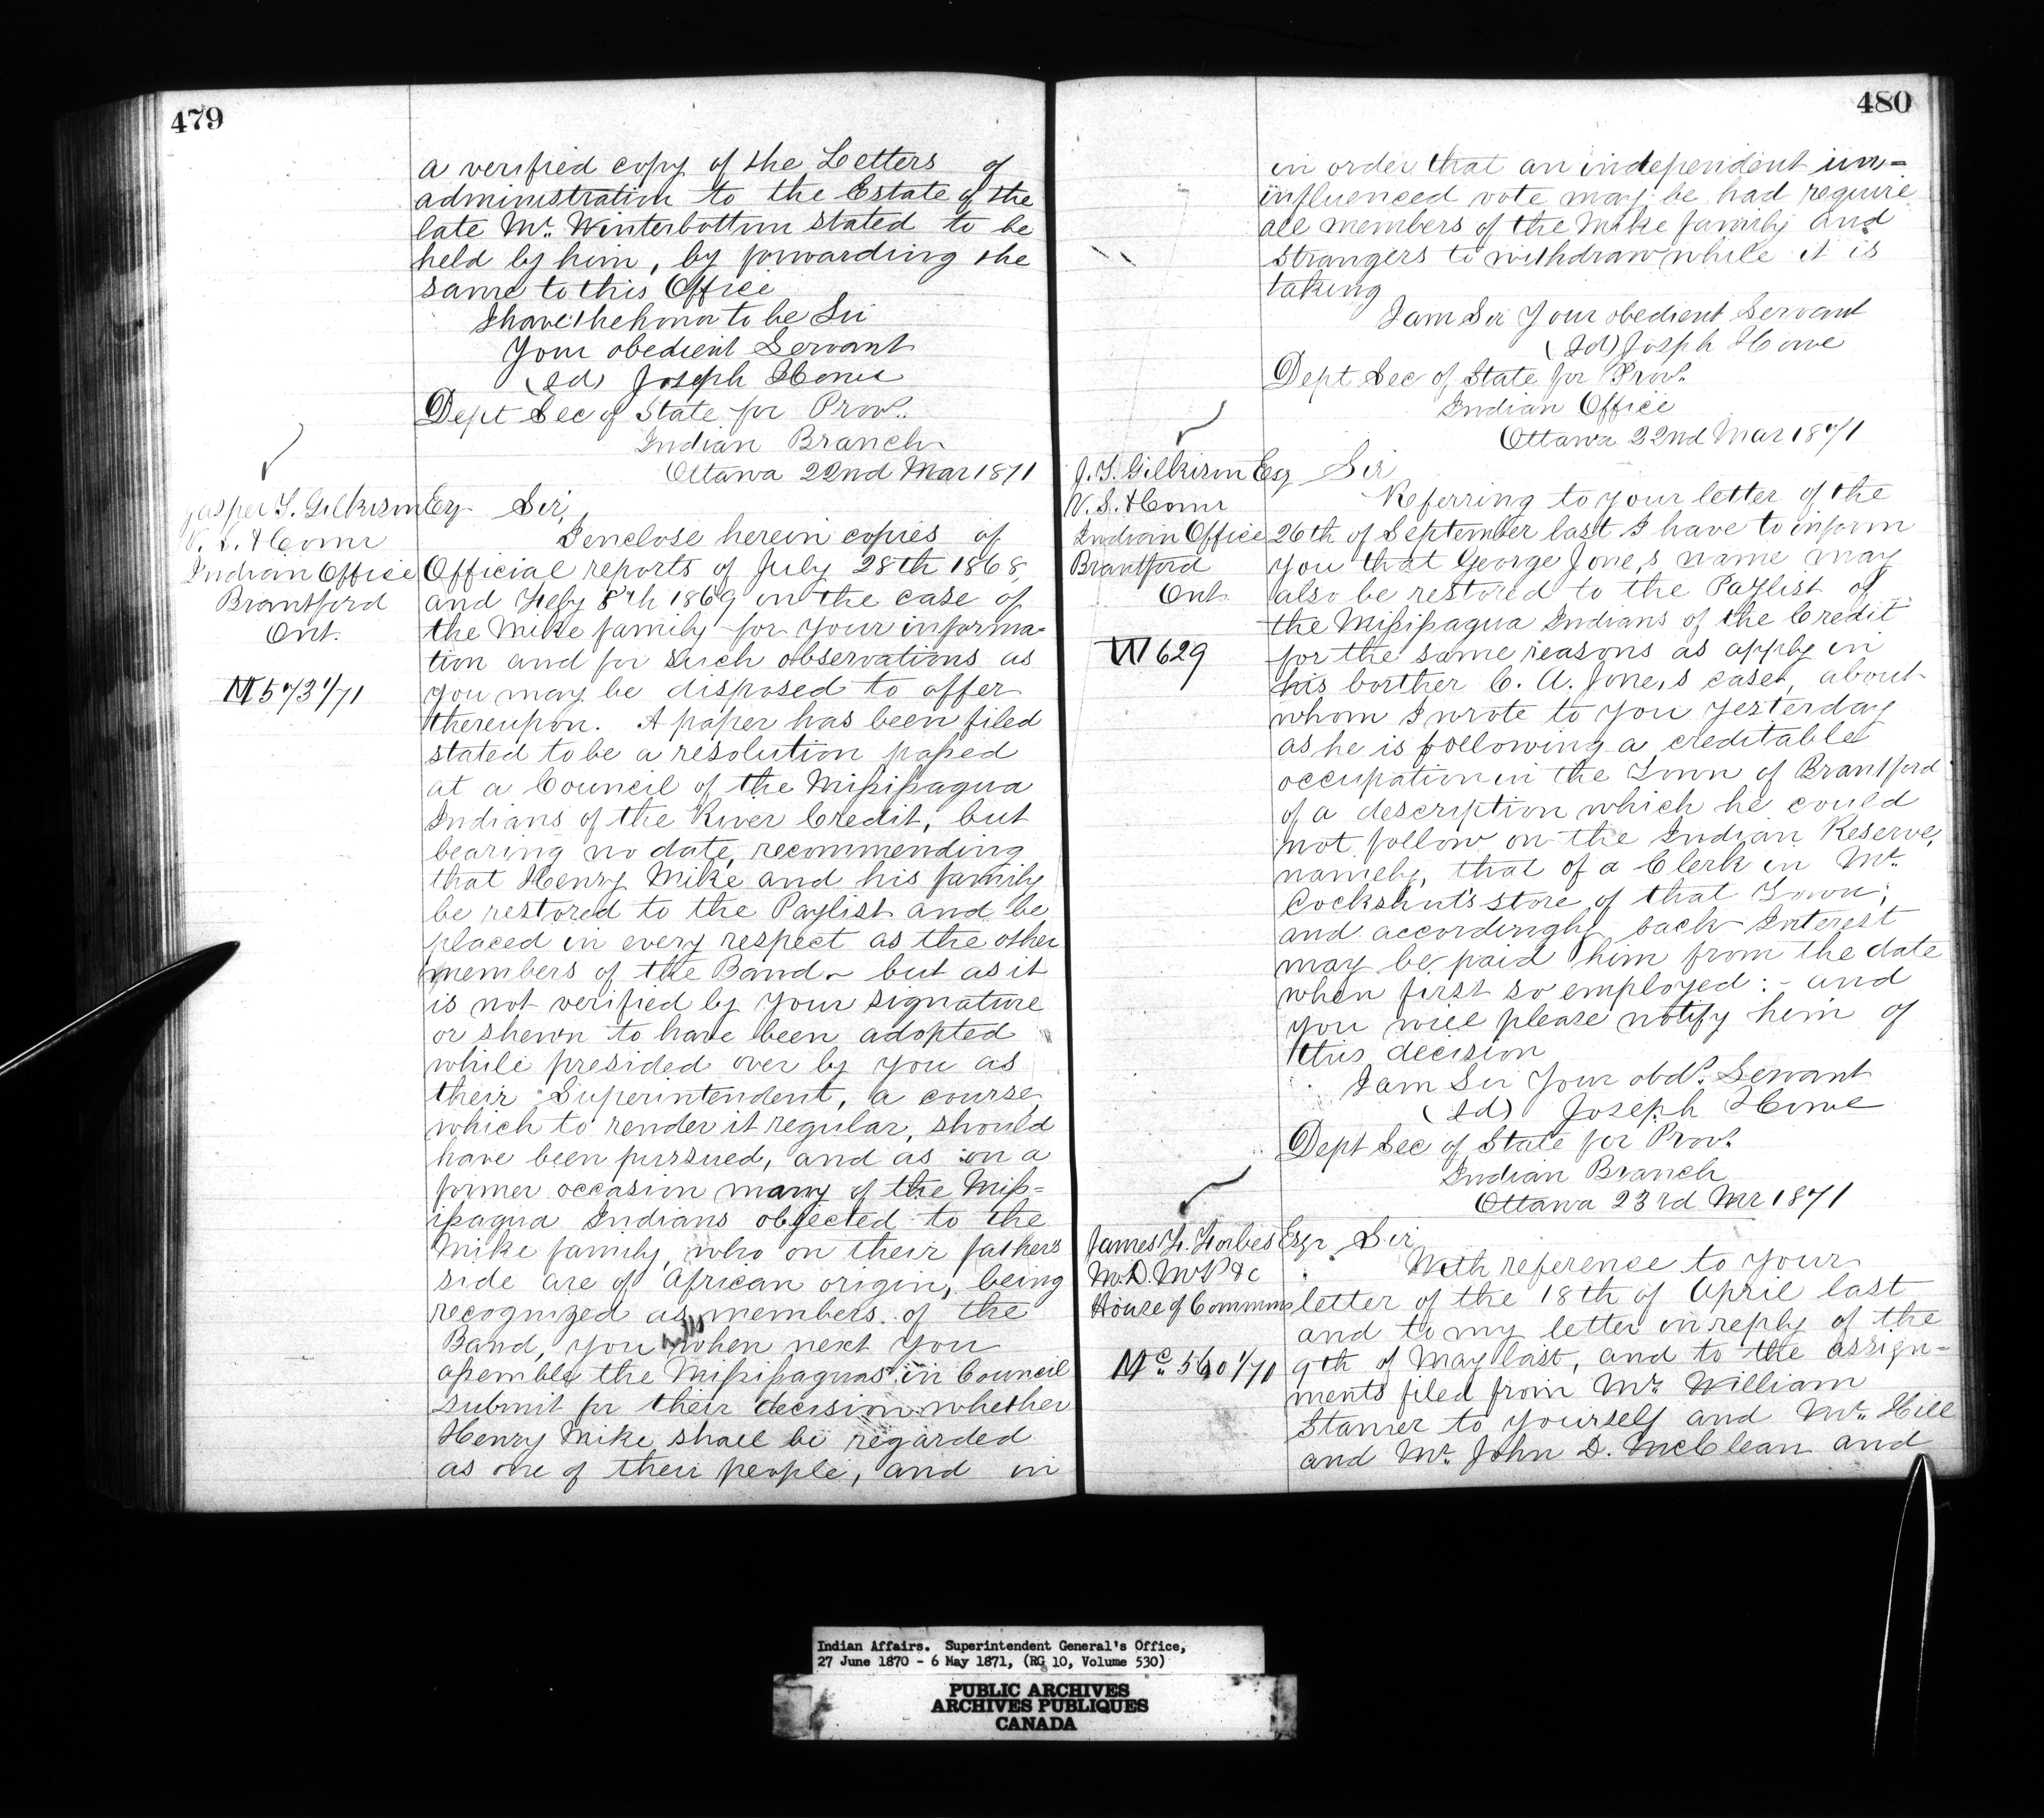 479
a verified copy of the Letters of
administration to the Estate of the
late Mr. Winterbottom stated to be
held by him, by forwarding the
same to this Office
I have the honor to be Sir
Your obedient Servant
(Sd) Joseph Howe
Dept Sec of State for Prov.
Indian Branch
Ottawa 22nd Mar 1871
Jasper T. Gilkison Esq Sir,
V. S. & Comr
Indian Office
Brantford
Ont.
I enclose herein copies of
Official reports of July 28th 1868,
and Feby 8th 1869 in the case of
the Mike family for your informa-
tion and for such observations as
you may be disposed to offer
thereupon. A paper has been filed
stated to be a resolution passed
at a Council of the Missisagua
Indians of the River Credit, but
bearing no date, recommending
that Henry Mike and his family
be restored to the Paylist and be
placed in every respect as the other
members of the Band - but as it
is not verified by your signature
or shewn to have been adopted
while presided over by you as
their Superintendent, a course,
which to render it regular, should
have been pursued, and as on a
former occasion many of the Miss-
isagua Indians objected to the
Mike family, who on their fathers
side are of African origin, being
recognized as members of the
Band, you will when next you
assemble the Missisaguas in Council
submit for their decision whether
Henry Mike shall be regarded
as one of their people, and in
480
in order that an independent un-
influenced vote may be had require
all members of the Mike family and
strangers to withdraw while it is
taking
I am Sir Your obedient Servant
(Sd) Joseph Howe
Dept Sec of State for Prov.
Indian Office
Ottawa 22nd Mar 1871
J. T. Gilkison Esq Sir
V. S. & Comr
Indian Office
Brantford
Ont.
629
Referring to your letter of the
26th of September last I have to inform
you that George Jone,s name may
also be restored to the Paylist of
the Missisagua Indians of the Credit
for the same reasons as apply in
his borther C. A. Jone,s case, about
whom I wrote to you yesterday
as he is following a creditable
occupation in the Town of Brantford
of a description which he could
not follow on the Indian Reserve,
namely, that of a Clerk in Mr.
Cockshut's store of that Town;
and accordingly back Interest
may be paid him from the date
when first so employed:- and
you will please notify him of
this decision
I am Sir Your obdt. Servant
(Sd) Joseph Howe
Dept Sec of State for Prov.
Indian Branch
Ottawa 23rd Mr 1871
James F. Forbes Esqr Sir
M.D. M P &c
House of Commons
With reference to your
letter of the 18th of April last
and to my letter in reply of the
9th of May last, and to the assign-
ments filed from Mr. William
Stamer to yourself and Mr. Hill
and Mr. John D. McClean and
Indian Affairs. Superintendent General's Office,
27 June 1870 - 6 May 1871, (RG 10, Volume 530)
PUBLIC ARCHIVES
ARCHIVES PUBLIQUES
CANADA